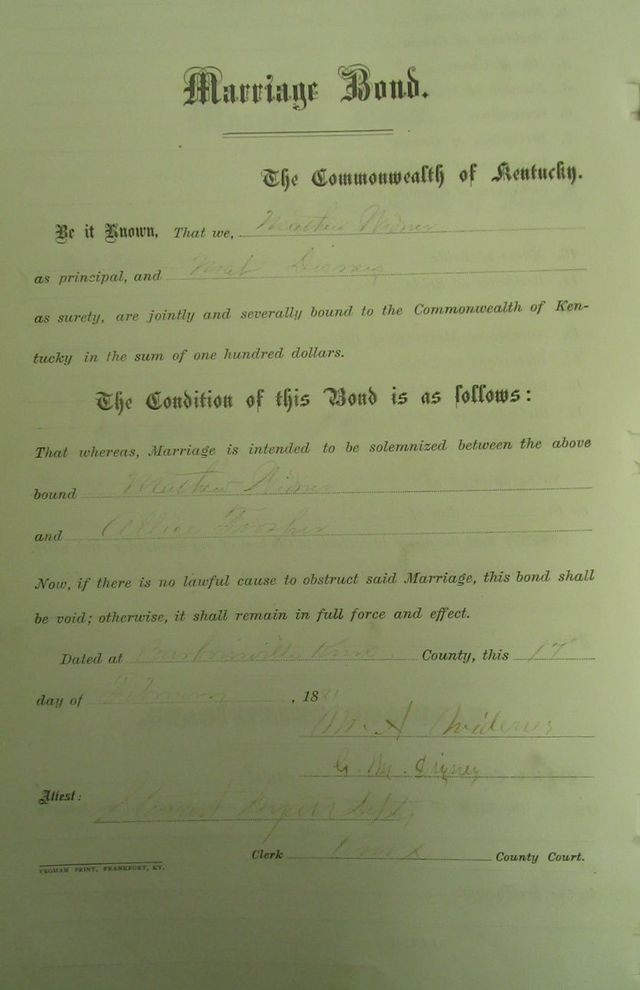 Marriage Bond.
The Commonwealth of Kentucky.
Be it Known, That we, Mathew Widner
as principal, and Mat Disney
as surety, are jointly and severally bound to the Commonwealth of Ken-
tucky in the sum of one hundred dollars.
The Condition of this Bond is as follows:
That whereas, Marriage is intended to be solemnized between the above
bound Mathew Widner
and
Now, if there is no lawful cause to obstruct said Marriage, this bond shall
be void; otherwise, it shall remain in full force and effect.
Dated at Barbourville Knox County, this 17
day of February, 188
Widener
G. M. Disney
Attest:
Clerk Knox County Court.
YEOMAN PRINT, FRANKFORT, KY.